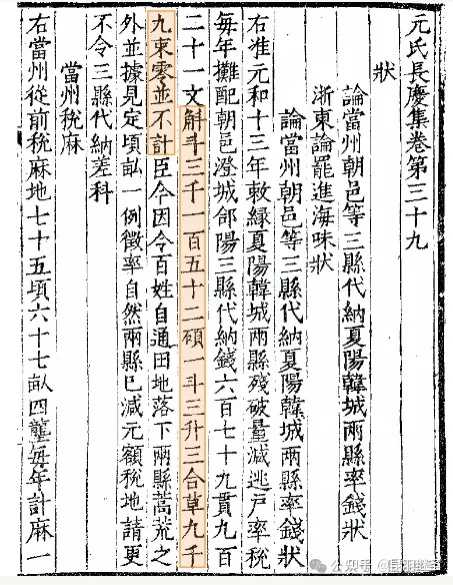 元氏長慶集卷第三十九
狀
論當州朝邑等三縣代納夏陽韓城兩縣率錢狀
浙東論罷進海味狀
論當州朝邑等三縣代納夏陽韓城兩縣率錢狀
右准元和十三年敕緣夏陽韓城兩縣殘破量減逃戶率稅
每年攤配朝邑澄城郃陽三縣代納錢六百七十九貫九百
二十一文斛斗三千一百五十二碩一斗三升三合草九千
九束零並不計臣今因令百姓自通田地落下兩縣蒿荒之
外並據見定頃畝一例徵率自然兩縣已減元額稅地請更
不令三縣代納差科
當州稅麻
右當州從前稅麻地七十五頃六十七畝四壠每年計麻一